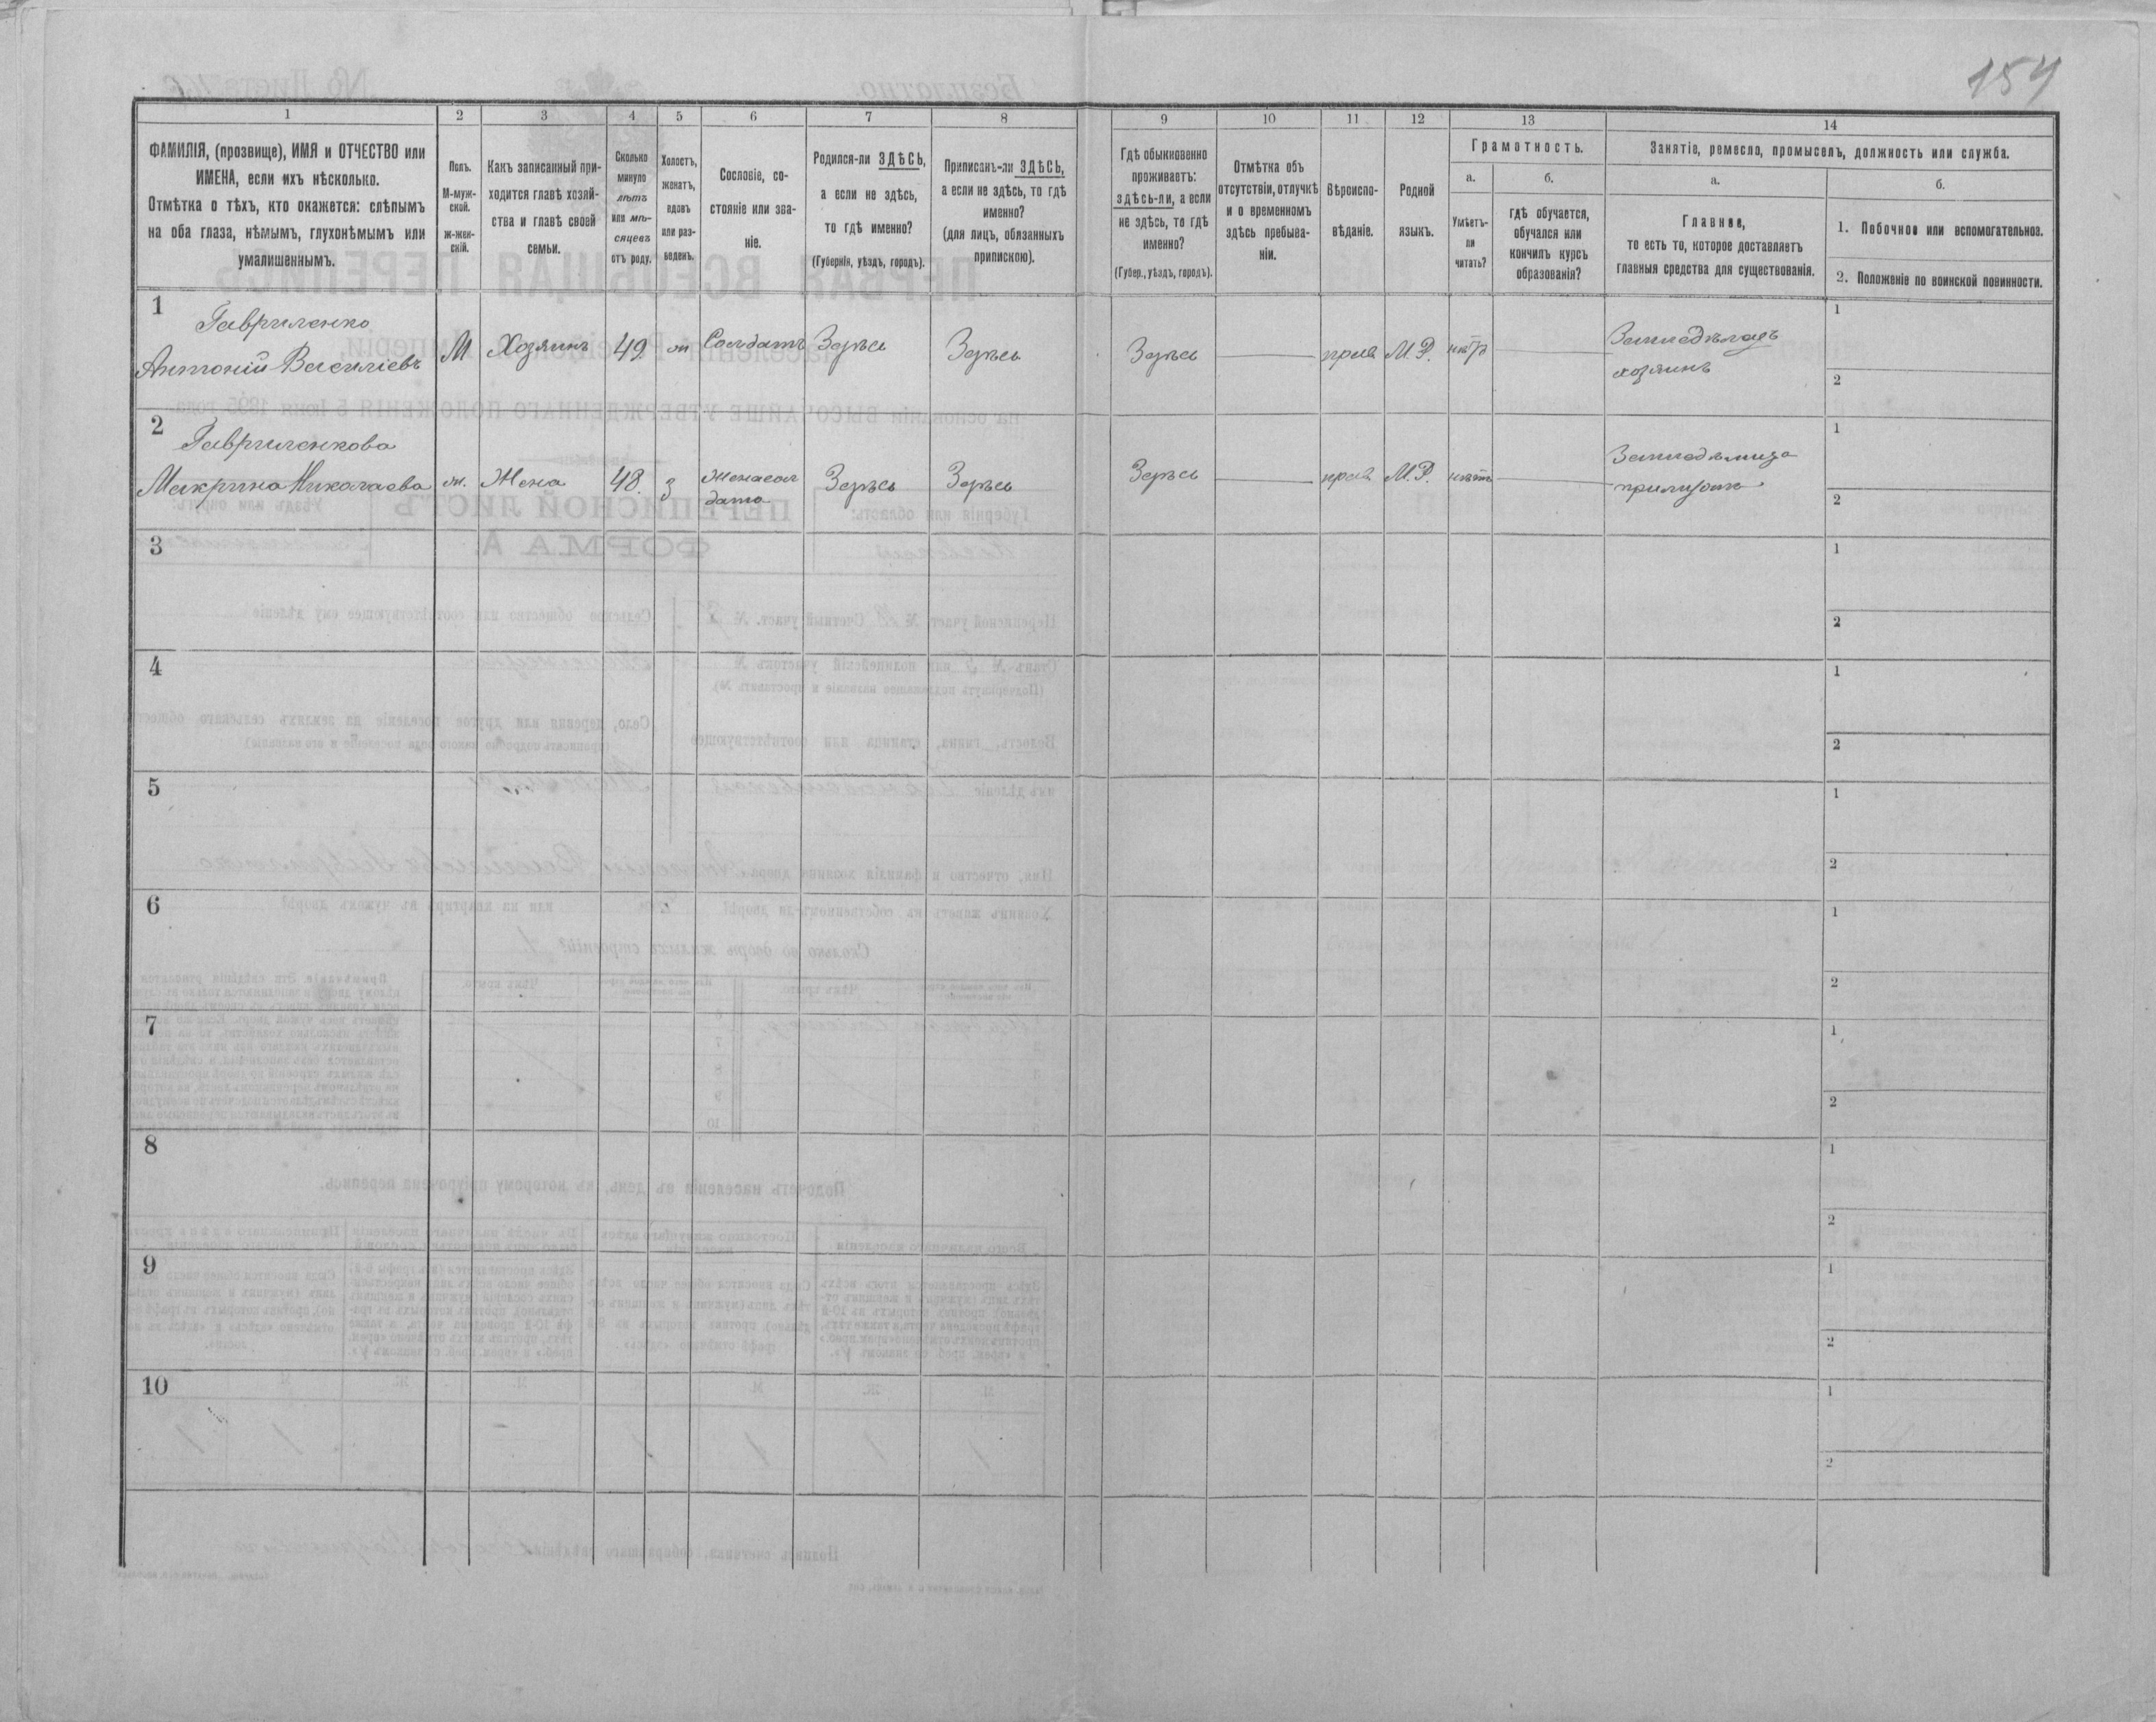 154
1
2
3
4
5
6
7
8
9
10
11
12
13
14
ФАМИЛІЯ, (прозвище), ИМЯ и ОТЧЕСТВО или
ИМЕНА, если ихъ нѣсколько.
Отмѣтка о тѣхъ, кто окажется: слѣпымъ
на оба глаза, нѣмымъ, глухонѣмымъ или
умалишеннымъ.
Полъ.
М-муж-
ской.
ж-жен-
скій.
Какъ записанный при-
ходится главѣ хозяй-
ства и главѣ своей
семьи.
Сколько
минуло
лѣтъ
или мѣ-
сяцевъ
отъ роду.
Холостъ,
женатъ,
вдовъ
или раз-
веденъ.
Сословіе, со-
стояніе или зва-
ніе.
Родился-ли ЗДѢСЬ,
а если не здѣсь,
то гдѣ именно?
(Губернія, уѣздъ, городъ).
Приписанъ-ли ЗДѢСЬ,
а если не здѣсь, то гдѣ
именно?
(для лицъ, обязанныхъ
припискою).
Гдѣ обыкновенно
проживаетъ:
здѣсь-ли, а если
не здѣсь, то гдѣ
именно?
(Губер., уѣздъ, городъ).
Отмѣтка объ
отсутствіи, отлучкѣ
и о временномъ
здѣсь пребыва-
ніи.
Вѣроиспо-
вѣданіе.
Родной
языкъ.
Грамотность.
а.
Умѣетъ-
ли
читать?
б.
гдѣ обучается,
обучался или
кончилъ курсъ
образованія?
Занятіе, ремесло, промыселъ, должность или служба.
а.
Главное,
то есть то, которое доставляетъ
главныя средства для существованія.
б.
1. Побочное или вспомогательное.
2. Положеніе по воинской повинности.
1
Гавриленко
Антоній Василіевъ
М
Хозяинъ
49
ж
Солдатъ
Здѣсь
Здѣсь
Здѣсь
прав
М.Р.
нѣтъ
Земледѣлецъ
хозяинъ
1
2
2
Гавриленкова
Макрина Николаева
ж.
Жена
48.
з
Жена сол
дата
Здѣсь
Здѣсь
Здѣсь
прав
М.Р.
нѣтъ
1
2
3
1
2
4
1
2
5
1
2
6
1
2
7
1
2
8
1
2
9
1
2
10
1
2